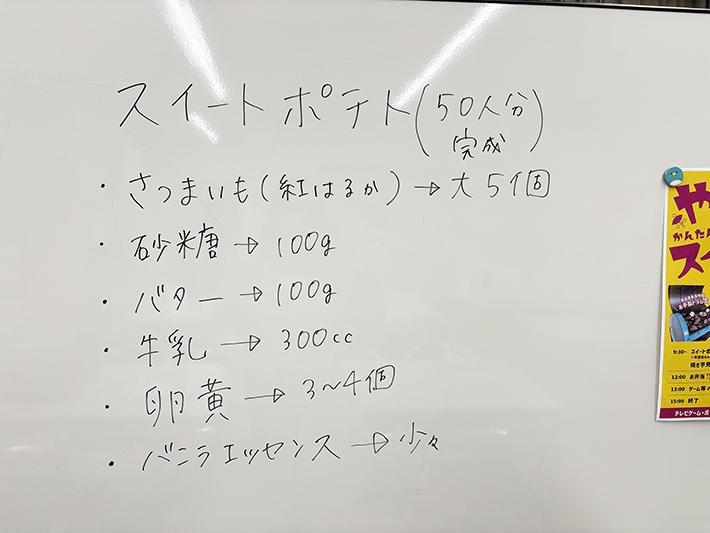 スイートポテト(50人分
完成)
・さつまいも(紅はるか)→大5個
・砂糖→100g
・バター→100g
・牛乳→300cc
・卵黄→3~4個
・バニラエッセンス→少々
や
かんたん
ス
9:30-
スイートポ
焼き芋
12:00 お弁当!!
13:00 ゲーム等
15:00 終了
テレビゲーム・ボ